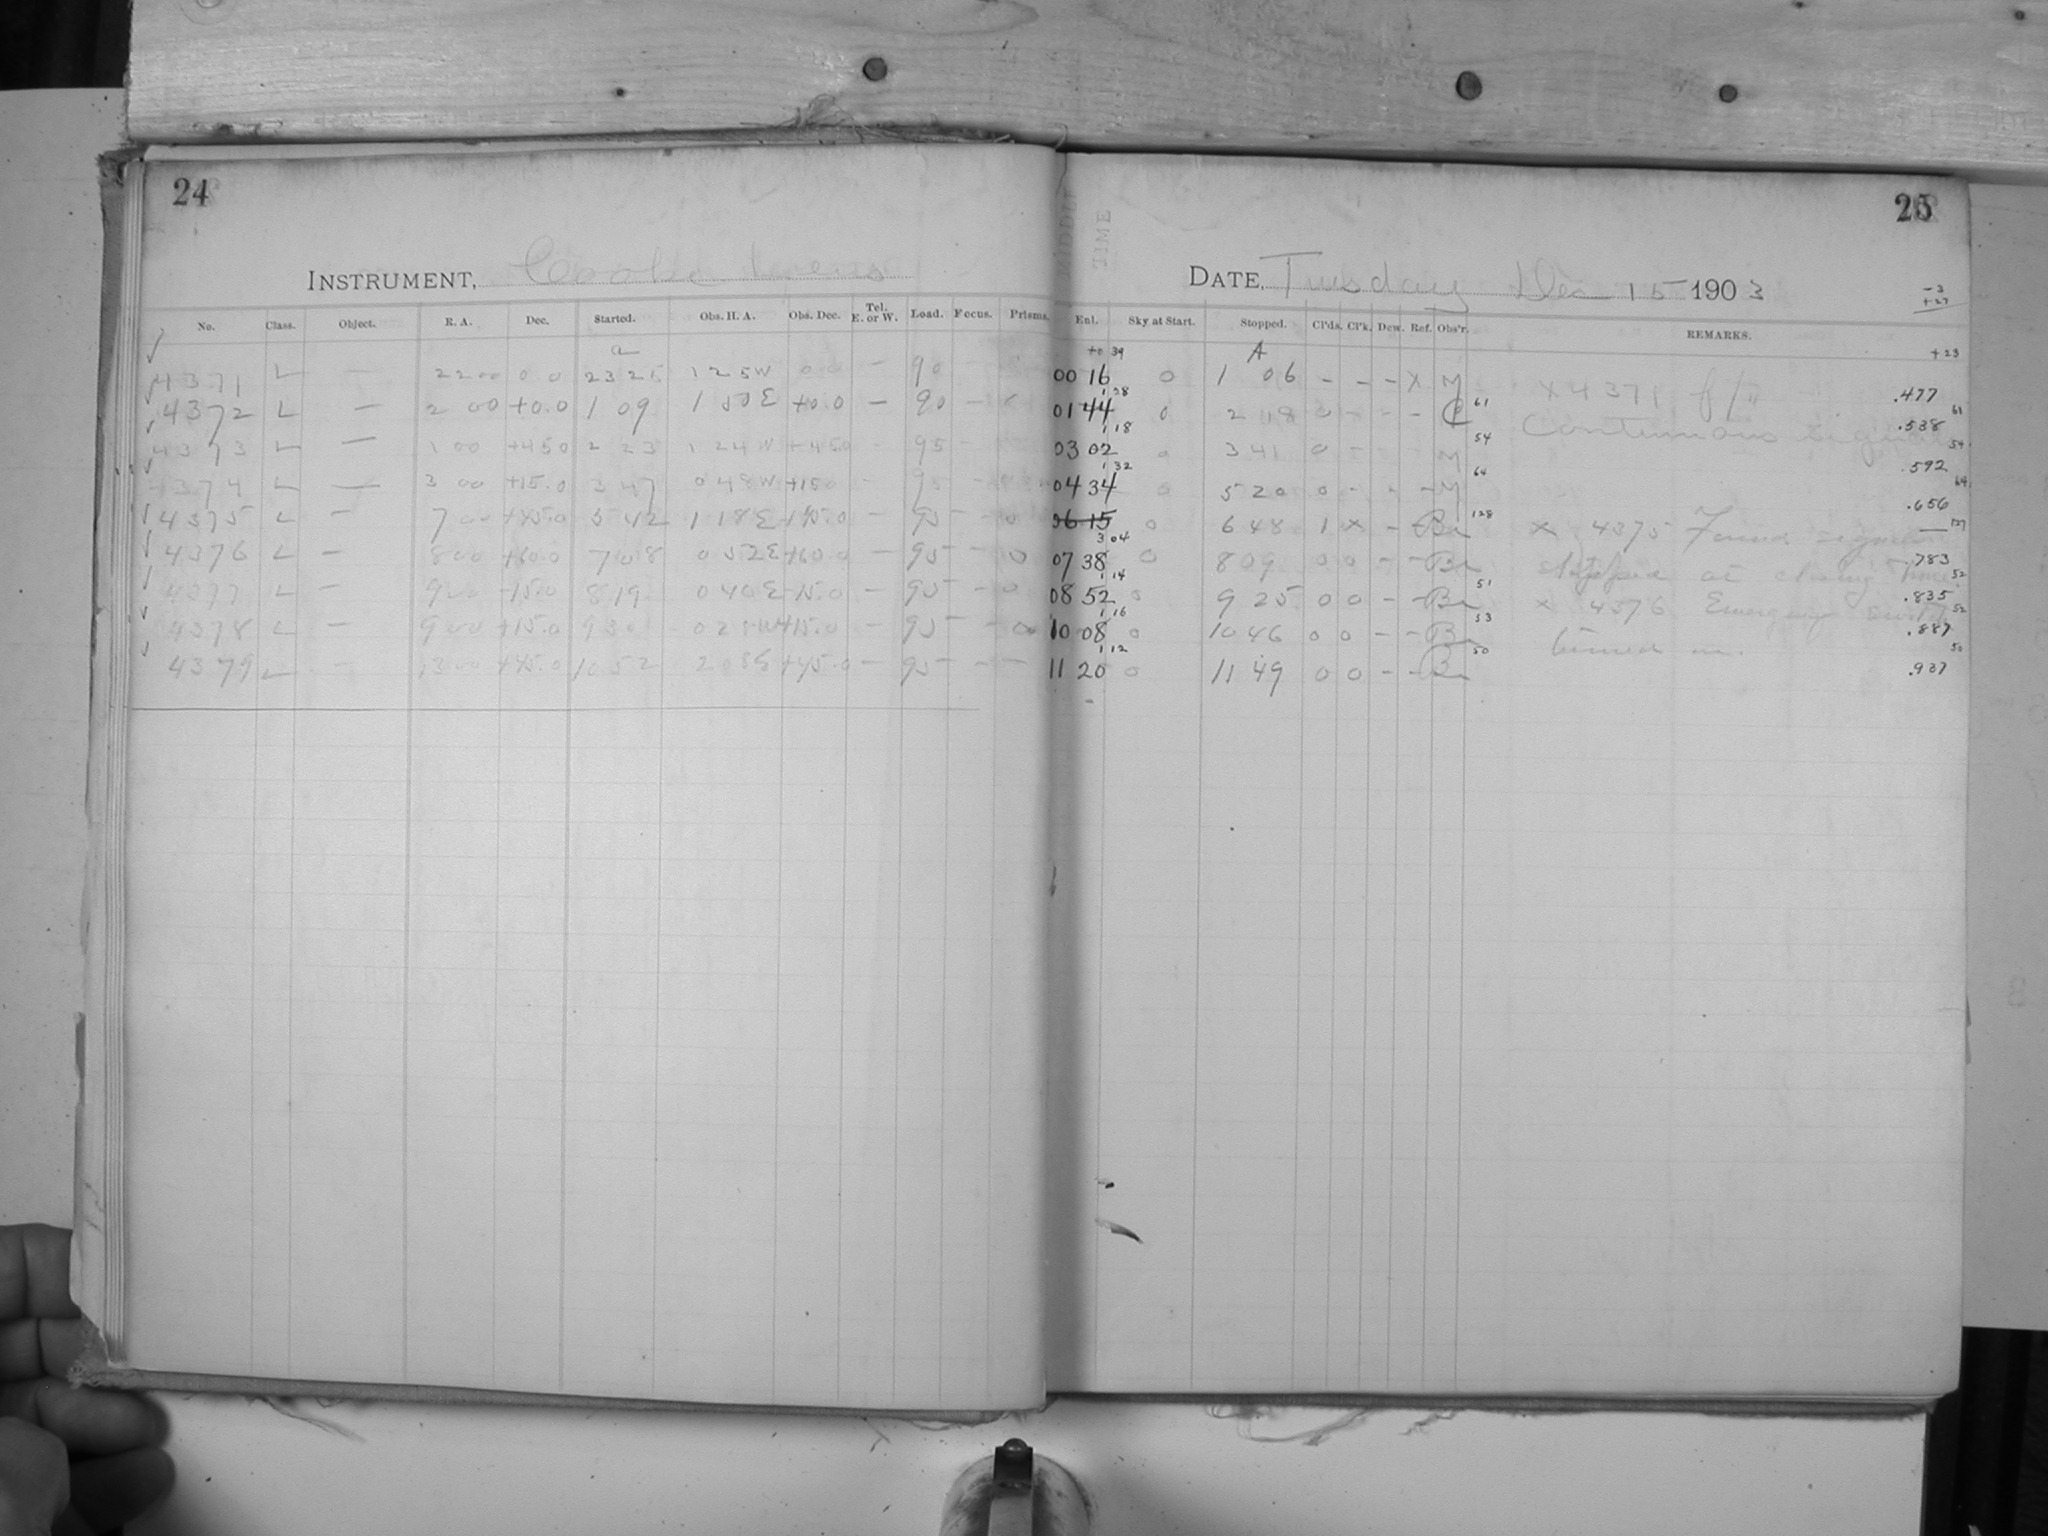 24
INSTRUMENT, Cooke Lens
No. Class. Object. R. A. Dec. Started. Obs. H. A. Obs. Dec. Tel. E. or W. Load. Focus. Prisms.
a
4371 L — 22 00 0 0 23 25 1 25 W 0 0 — 90
4372 L — 2 00 +0.0 1 09 1 50 E +0.0 — 90 —
4373 L — 1 00 +45 0 2 23 1 24 W +45 0 - 95 —
4374 L — 3 00 +15.0 3 47 0 48 W +15 0 - 95 -
4375 L — 7 00 +45.0 5 42 1 18 E +45.0 — 95 - - 0
4376 L — 8 00 +60.0 7 08 0 52 E +60.0 — 95 - - 0
4377 L - 9 00 -15.0 8 19 0 40 E -15.0 - 95 - - 0
4378 L - 9 00 +15.0 9 30 W +15.0 - 95 - - 0
4379 L — 13 00 +45.0 10 52 2 08 E +45.0 — 95 - - —
25
MIDDLE TIME
DATE, Tuesday Dec 15 1903
-3
+27
Enl. Sky at Start. Stopped. Cl'ds. Cl'k. Dew. Ref. Obs'r. REMARKS.
+0 39 A +23
00 16 0 1 06 - - - X M X 4371 f/ .477
1 28 61 61
01 44 0 2 18 0 - - - Continuous signal .538
1 18 54 54
03 02 0 3 41 0 - - M .592
1 32 64 64
04 34 0 5 20 0 - - - M .656
128 127
06 15 0 6 48 1 X - - Br X 4375 Found signal —
3 04
07 38 0 8 09 0 0 - - Br stopped at closing time. .783
1 14 51 52
08 52 0 9 25 0 0 - - Br X 4376 Emergency switch .835
1 16 53 52
10 08 0 10 46 0 0 - - Br turned on. .887
1 12 50 50
11 20 0 11 49 0 0 - - Br .937